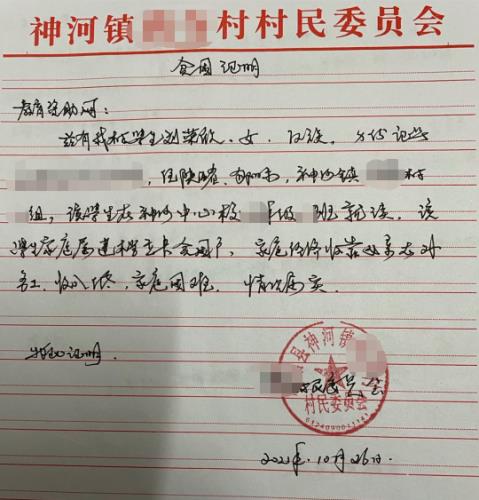 神河镇村村民委员会
贫困证明
教育资助网：
兹有我村学生刘荣欣、女、汉族、身份证号
，住陕西省、旬阳市，神河镇村
组，该学生在神河中心校年级班就读，该
学生家庭属建档立卡贫困户，家庭经济收靠父亲在外
务工、收入低、家庭困难．情况属实．
特此证明．
县神河镇
村民委员会
村民委员会
2021年．10月26日．